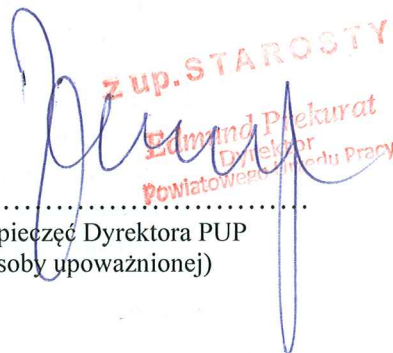 z up. STAROSTY
Edmund Prekurat
Dyrektor
Powiatowego Urzędu Pracy
pieczęć Dyrektora PUP
soby upoważnionej)